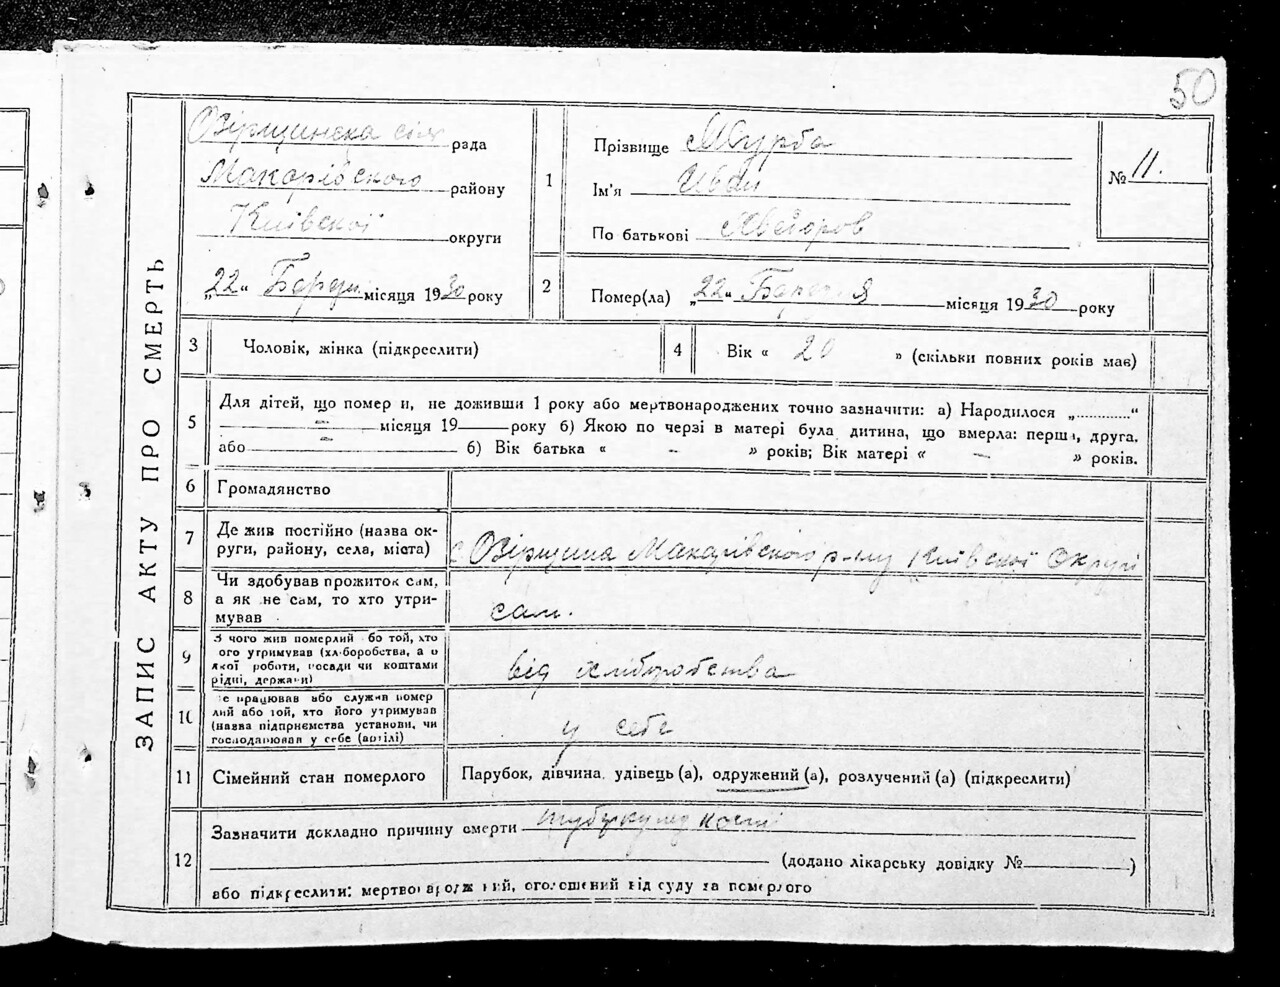 50
ЗАПИС АКТУ ПРО СМЕРТЬ
Озірщинска сіл рада
Макарівского району
Київскої округи
„22" Березн місяця 1930 року
1
Прізвище Мурба
Ім'я Иван
По батькові
№ 11.
2
Помер(ла) „22" Березня місяця 1930 року
3 Чоловік, жінка (підкреслити)
4 Вік « 20 » (скільки повних років має)
5
Для дітей, що помер и, не доживши 1 року або мертвонароджених точно зазначити: а) Народилося „............"
місяця 19 року б) Якою по черзі в матері була дитина, що вмерла: перша, друга,
або б) Вік батька « – » років; Вік матері « – » років.
6 Громадянство
7
Де жив постійно (назва ок-
руги, району, села, міста)
с Озірщина Макарівского р-ну Київскої Округи
8
Чи здобував прожиток сам,
а як не сам, то хто утри-
мував
сам.
9
З чого жив померлий або той, хто
його утримував (хліборобства, а о
якої роботи, посади чи коштами
рідні, держави)
від хліборобства
10
е працював або служив помер
лий або той, хто його утримував
(назва підприємства установи, чи
господарював у себе (вдома)
у себе
11 Сімейний стан померлого
Парубок, дівчина, удівець (а), одружений (а), розлучений (а) (підкреслити)
12
Зазначити докладно причину смерти туберкульоз кости
(додано лікарську довідку № )
або підкреслити: мертвонароджений, оголошений від суду за померлого